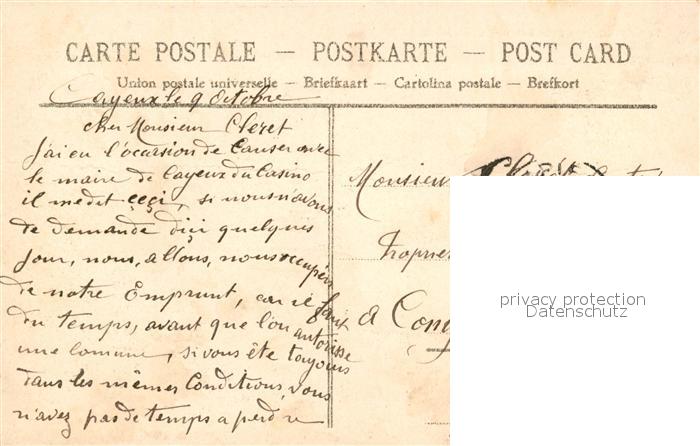 CARTE POSTALE — POSTKARTE — POST CARD
Union postale universelle — Briefkaart — Cartolina postale — Brefkort
Cayeux le 9 Octobre
cher Monsieur Cleret
J'ai eu l'ocarsion de Causer avec
le maire de Cayeux du Casino
il me dit ceçi, si nous n'avons
de demande d'içi quelques
jour, nous, allons, nous occuper
de notre Emprunt, car il faut
du temps, avant que l'on autorisse
une Comune, si vous ête toujours
dans les mêmes Conditions, vous
n'avez pas de temps a perdre
Monsieur
Propriet
a Cony
privacy protection
Datenschutz